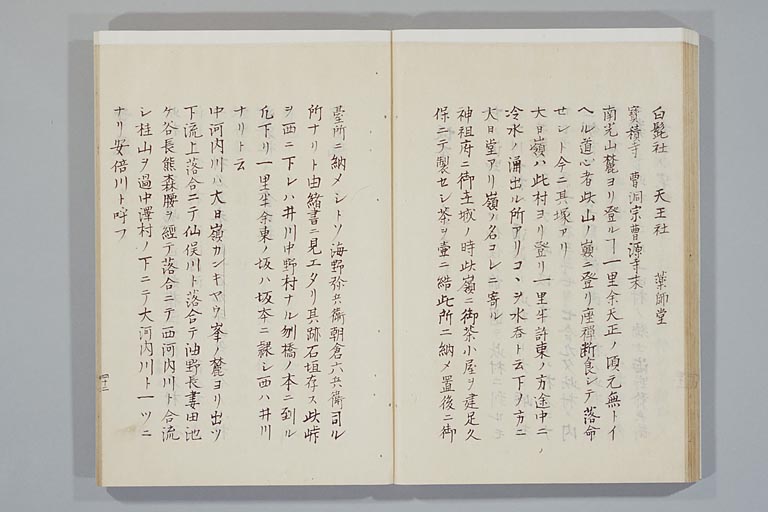 白髭社　天王社　薬師堂
寳積寺　曹洞宗曹源寺末
南光山麓ヨリ登ルヿ一里余天正ノ頃元無トイ
ヘル道心者此山ノ嶺ニ登リ座禅断食シテ落命
セシト今ニ其塚アリ
大日嶺ハ此村ヨリ登リ一里半許東ノ方途中ニノ
冷水ノ涌出ル所アリコヽヲ水呑ト云下ヲ方ニ
大日堂アリ嶺ノ名コレニ寄ル
神祖府ニ御在城ノ時此嶺ニ御茶小屋ヲ建足久
保ニテ製セシ茶ヲ壷ニ結此所ニ納メ置後ニ御
臺所ニ納メシトソ海野弥兵衛朝倉六兵衛司ル
所ナリト由緒書ニ見エタリ其跡石垣存ス此峠
ヲ西ニ下レハ井川中野村ナル刎橋ノ本ニ到ル
凢下リ一里半余東ノ坂ハ坂本ニ課シ西ハ井川
ナリト云
中河内川ハ大日嶺カンキマツ峯ノ麓ヨリ出ツ
下流上落合ニテ仙俣川ト落合テ油野長妻田池
ケ谷長熊森腰ヲ經テ落合ニテ西河内川ト合流
シ桂山ヲ過中澤村ノ下ニテ大河内川ト一ツニ
ナリ安倍川ト呼フ